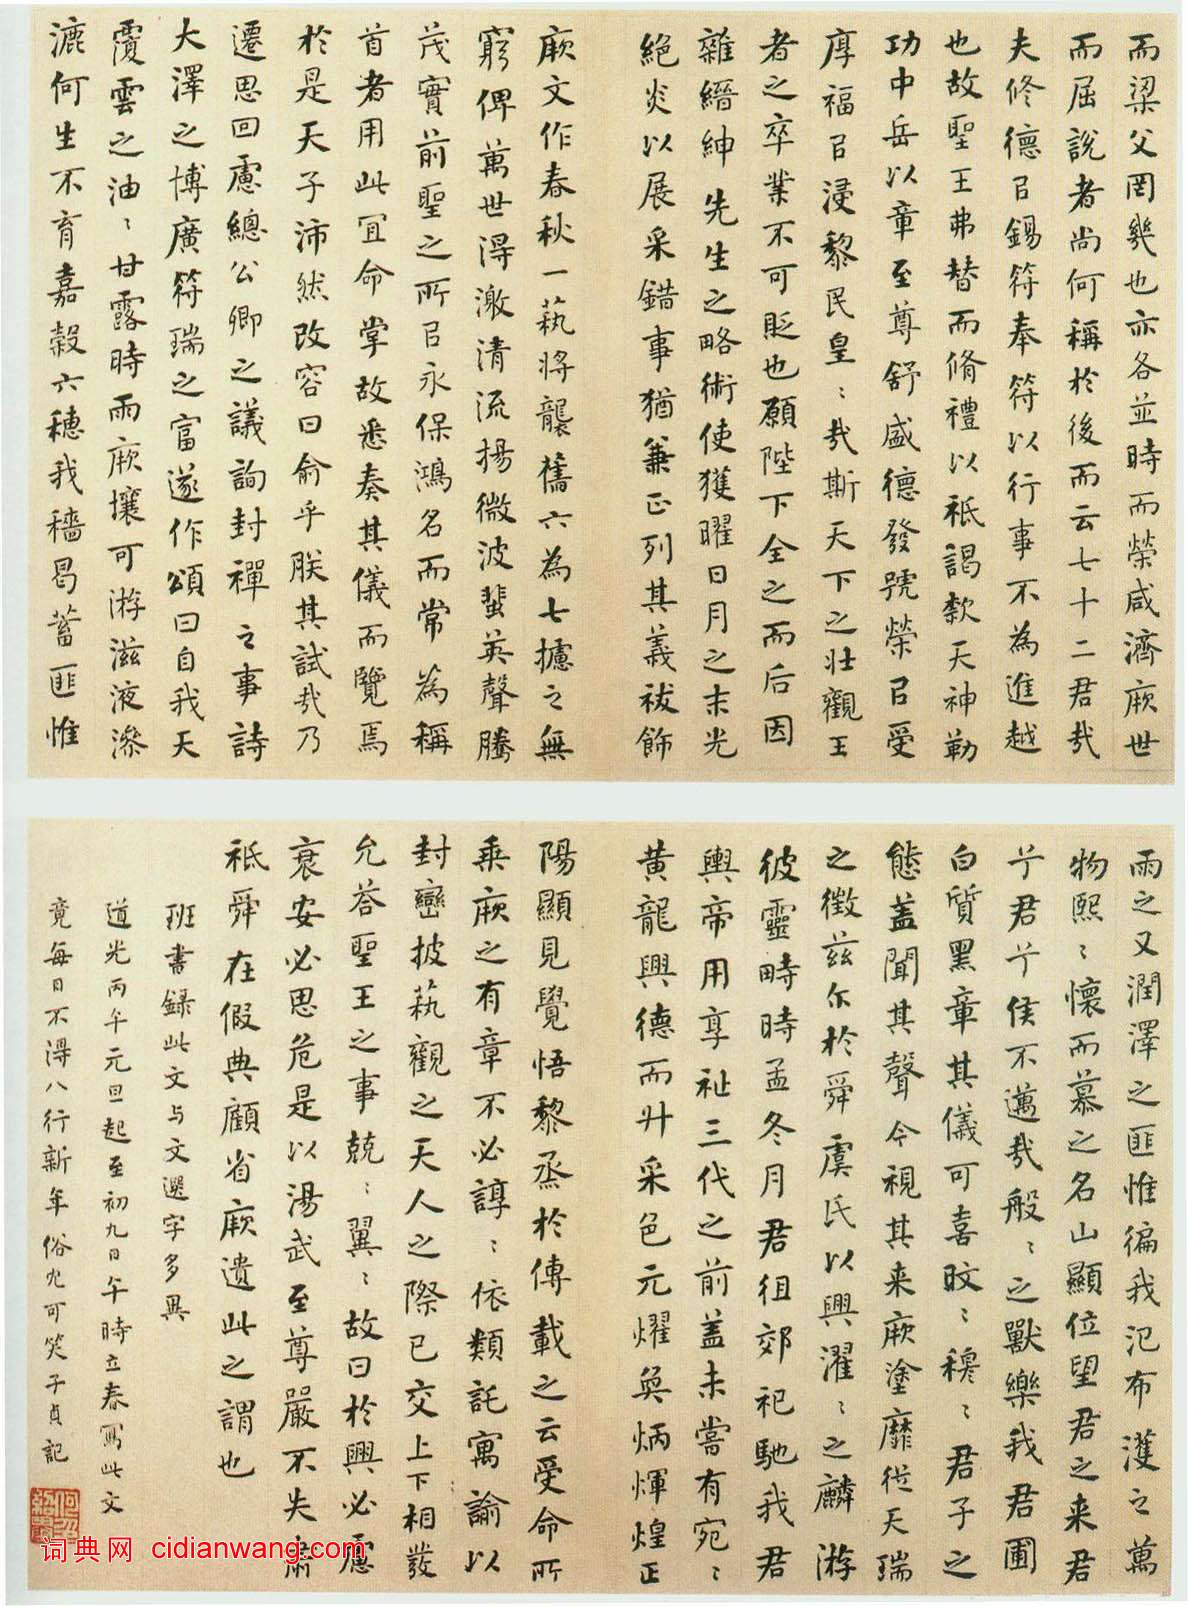 而梁父罔幾也亦各並時而榮咸濟厥世
而屈說者尚何稱於後而云七十二君哉
夫修德㠯錫符奉符以行事不為進越
也故聖王弗替而脩禮以祗謁欵天神勒
功中岳以章至尊舒盛德發號榮㠯受
厚福㠯浸黎民皇〻哉斯天下之壯觀王
者之卒業不可貶也願陛下全之而后因
雜縉紳先生之略術使獲曜日月之末光
絕炎以展采錯事猶兼正列其義祓飾
厥文作春秋一蓺將襲舊六為七攄之無
窮俾萬世得激清流揚微波蜚英聲騰
茂實前聖之所㠯永保鴻名而常為稱
首者用此宜命掌故悉奏其儀而覽焉
於是天子沛然改容曰俞乎朕其試哉乃
遷思回慮總公卿之議詢封禪之事詩
大澤之博廣符瑞之富遂作頌曰自我天
覆雲之油〻甘露時雨厥壤可游滋液滲
漉何生不育嘉穀六穗我穡曷蓄匪惟
雨之又潤澤之匪惟徧我氾布濩之萬
物熙〻懷而慕之名山顯位望君之来君
兮君兮侯不邁哉般〻之獸樂我君圃
白質黑章其儀可喜旼〻穆〻君子之
態蓋聞其聲今視其来厥塗靡從天瑞
之徵茲尒於舜虞氏以興濯〻之麟游
彼靈畤時孟冬月君徂郊祀馳我君
輿帝用享祉三代之前蓋未嘗有宛〻
黄龍興德而升采色元燿奐炳煇煌正
陽顯見覺悟黎烝於傳載之云受命所
乘厥之有章不必諄〻依類託寓諭以
封巒披蓺觀之天人之際已交上下相發
允荅聖王之事兢〻翼〻故曰於興必慮
衰安必思危是以湯武至尊嚴不失肅
祗舜在假典顧省厥遺此之謂也
班書録此文与文選字多異
道光丙午元旦起至初九日午時立春寫此文
竟每日不得八行新年俗冗可笑子貞記
何紹基
词典网 cidianwang.com